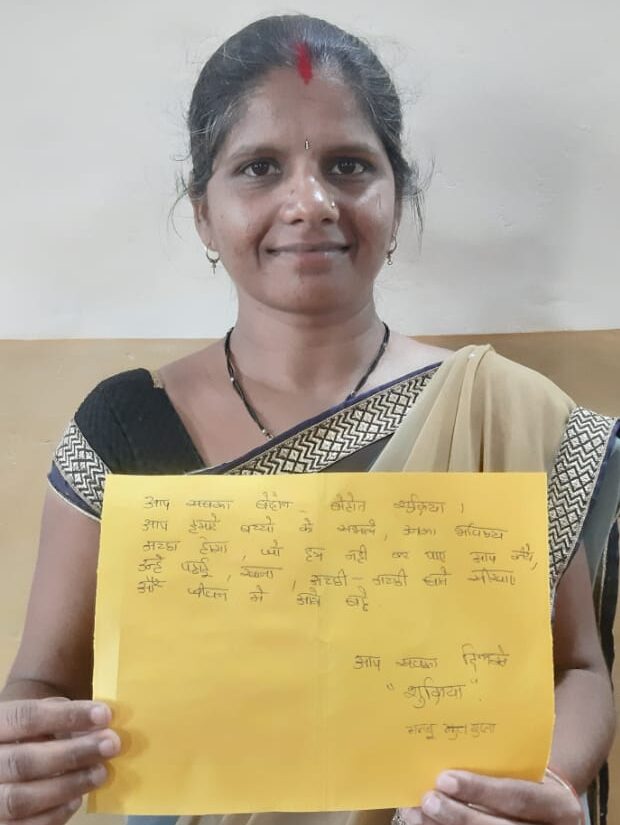 आप सबका बोहोत - बोहोत शुक्रिया ।
आप हमारे बच्चो के सपने, उनका भविष्य
अच्छा होगा, जो हम नही कर पाए आप करे,
उन्हे पढ़ाई, खेलना, अच्छी - अच्छी बाते सीखाए
और जीवन मे आगे बढ़े.
आप सबका दिलसे
"शुक्रिया".
गुप्ता